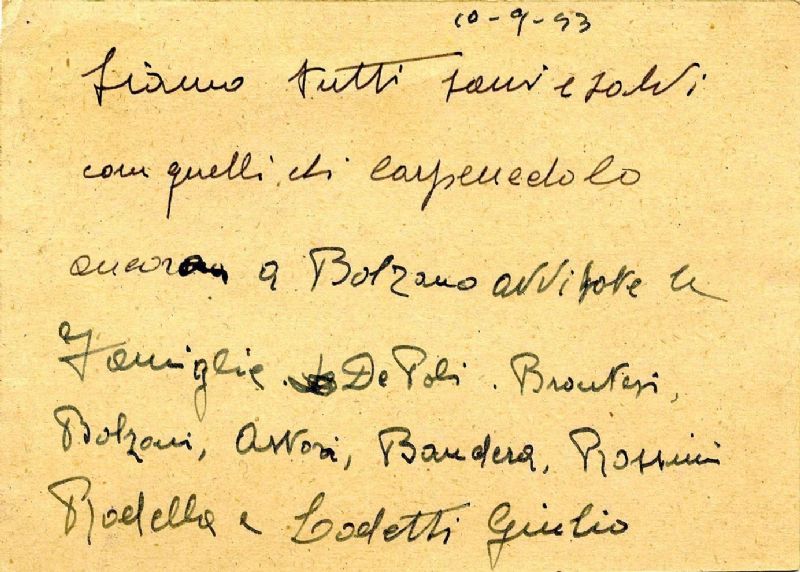 10-9-43
siamo tutti sani e salvi
con quelli di Carpenedolo
ancora a Bolzano avvisate le
Famiglie. De Poli. Brontesi,
Bolzoni, Astori, Bandera, Rossini
Rodella e Lodetti Giulio